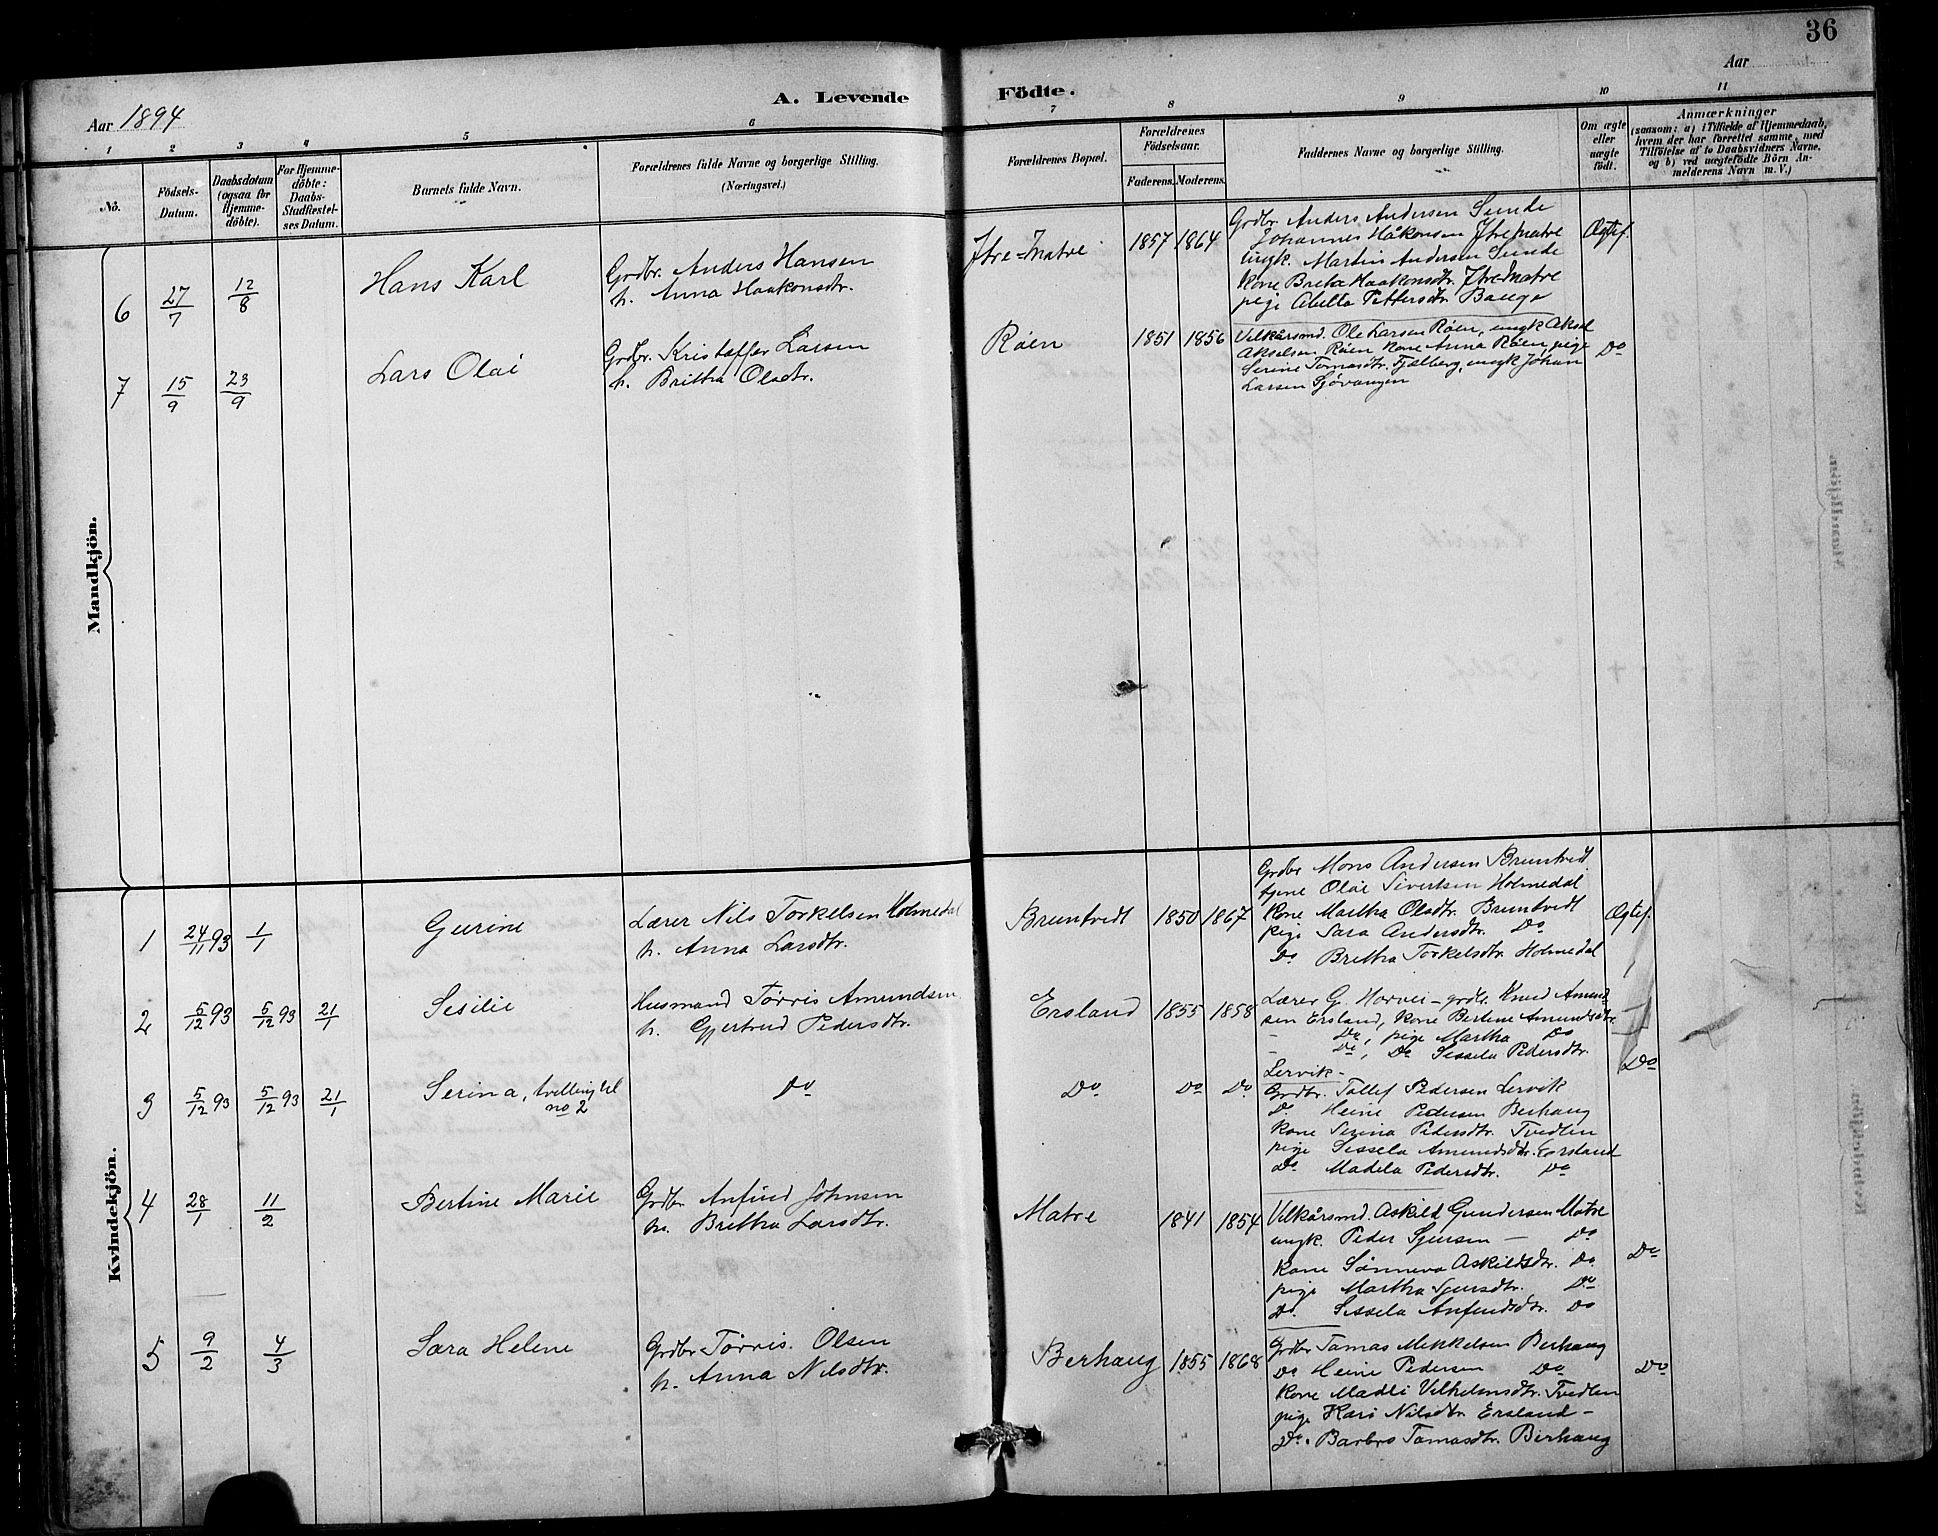 36
Aar 1894
A. Levende Födte.
Aar
1 2 3 4 5 6 7 8 9 10 11
No.
Födsels-
Datum.
Daabsdatum
(ogsaa for
Hjemme-
döbte).
For Hjemme-
döbte:
Daabs-
Stadfæstel-
ses Datum.
Barnets fulde Navn.
Forældrenes fulde Navne og borgerlige Stilling.
(Næringsvei.)
Forældrenes Bopæl.
Forældrenes
Födselsaar.
Faderens. Moderens.
Faddernes Navne og borgerlige Stilling.
Om ægte
eller
uægte
født.
Anmærkninger
(saasom: a) i Tilfælde af Hjemmedaab,
hvem der har forrettet samme, med
Tilföielse af to Daabsvidners Navne,
og b) ved uægtefödte Börn An-
melderens Navn m. V.)
Mandkjön.
6 27/7 12/8 Hans Karl
Grdbr. Anders Hansen
h. Anna Haakonsdtr.
Ytre-Matre 1857 1864
Grdbr. Anders Andersen Sunde
Johannes Håkonsen Ytre Matre
Ungk. Martin Andersen Sunde
Kone Breta Haakonsdtr. Ytre Matre
pige Abella Pettersdtr. Bauge
Ægtef.
7 15/9 23/9 Lars Olai
Grdbr. Kristaffer Larsen
h. Britha Olsdtr.
Røen 1851 1856
Vilkårsmd. Ole Larsen Røen, ungk Aksel
Akselsen Røen Kone Anna Røen, pige
Serine Tomasdtr. Fjælberg, ungk Johan
Larsen Sjövangen
Do
Kvindekjön.
1 24/11 93 1/1 Gurine
Lærer Nils Torkelsen Holmedal
h. Anna Larsdtr.
Bruntvedt 1850 1867
Grdbr Mons Andersen Bruntvedt
tjene Olai Sivertsen Holmedal
Kone Martha Olsdtr. Bruntvedt
pige Sara Andersdtr. Do
Do Brettha Torkelsdtr Holmedal
Ægtef.
2 5/12 93 5/12 93 21/1 Sesilie
Husmand Tørris Amundsen
h. Gjertrud Pedersdtr.
Ersland 1855 1858
Lærer G. Horvei - grdbr. Knud Amund-
sen Ersland, Kone Bertine Amundsdtr.
- Do, pige Martha Do
- Do, Do Sessela Pedersdtr.
Lervik -
3 5/12 93 5/12 93 21/1 Serina, tvilling til
no 2
Do
Do Do Do
Grdbr. Tollef Pedersen Lervik
Do. Heine Pedersen Berhaug
Kone Serina Pedersdtr. Tvedten
pige Sessela Amundsdtr. Ersland
Do Madela Pedersdtr. Do
Do
4 28/1 11/2 Bertine Marie
Grdbr Anfind Johnsen
h. Brettha Larsdtr.
Matre 1841 1854
Vilkårsmd. Askild Gundersen Matre
ungk. Peder Sjursen - Do
Kone Sønneva Askildsdtr. Do
pige Martha Sjursdtr. Do
Do. Sessela Anfindsdtr. Do
Do
5 9/2 4/3 Sara Helene
Grdbr Tørris. Olsen
h. Anna Nilsdtr.
Berhaug 1855 1868
Grdbr Tamas Mekkelsen Berhaug
Do Heine Pedersen Do
Kone Madli Vilhelmsdtr. Tvedten
pige Kari Nilsdtr Ersland -
Do. Barbro Tamasdtr. Berhaug
Do